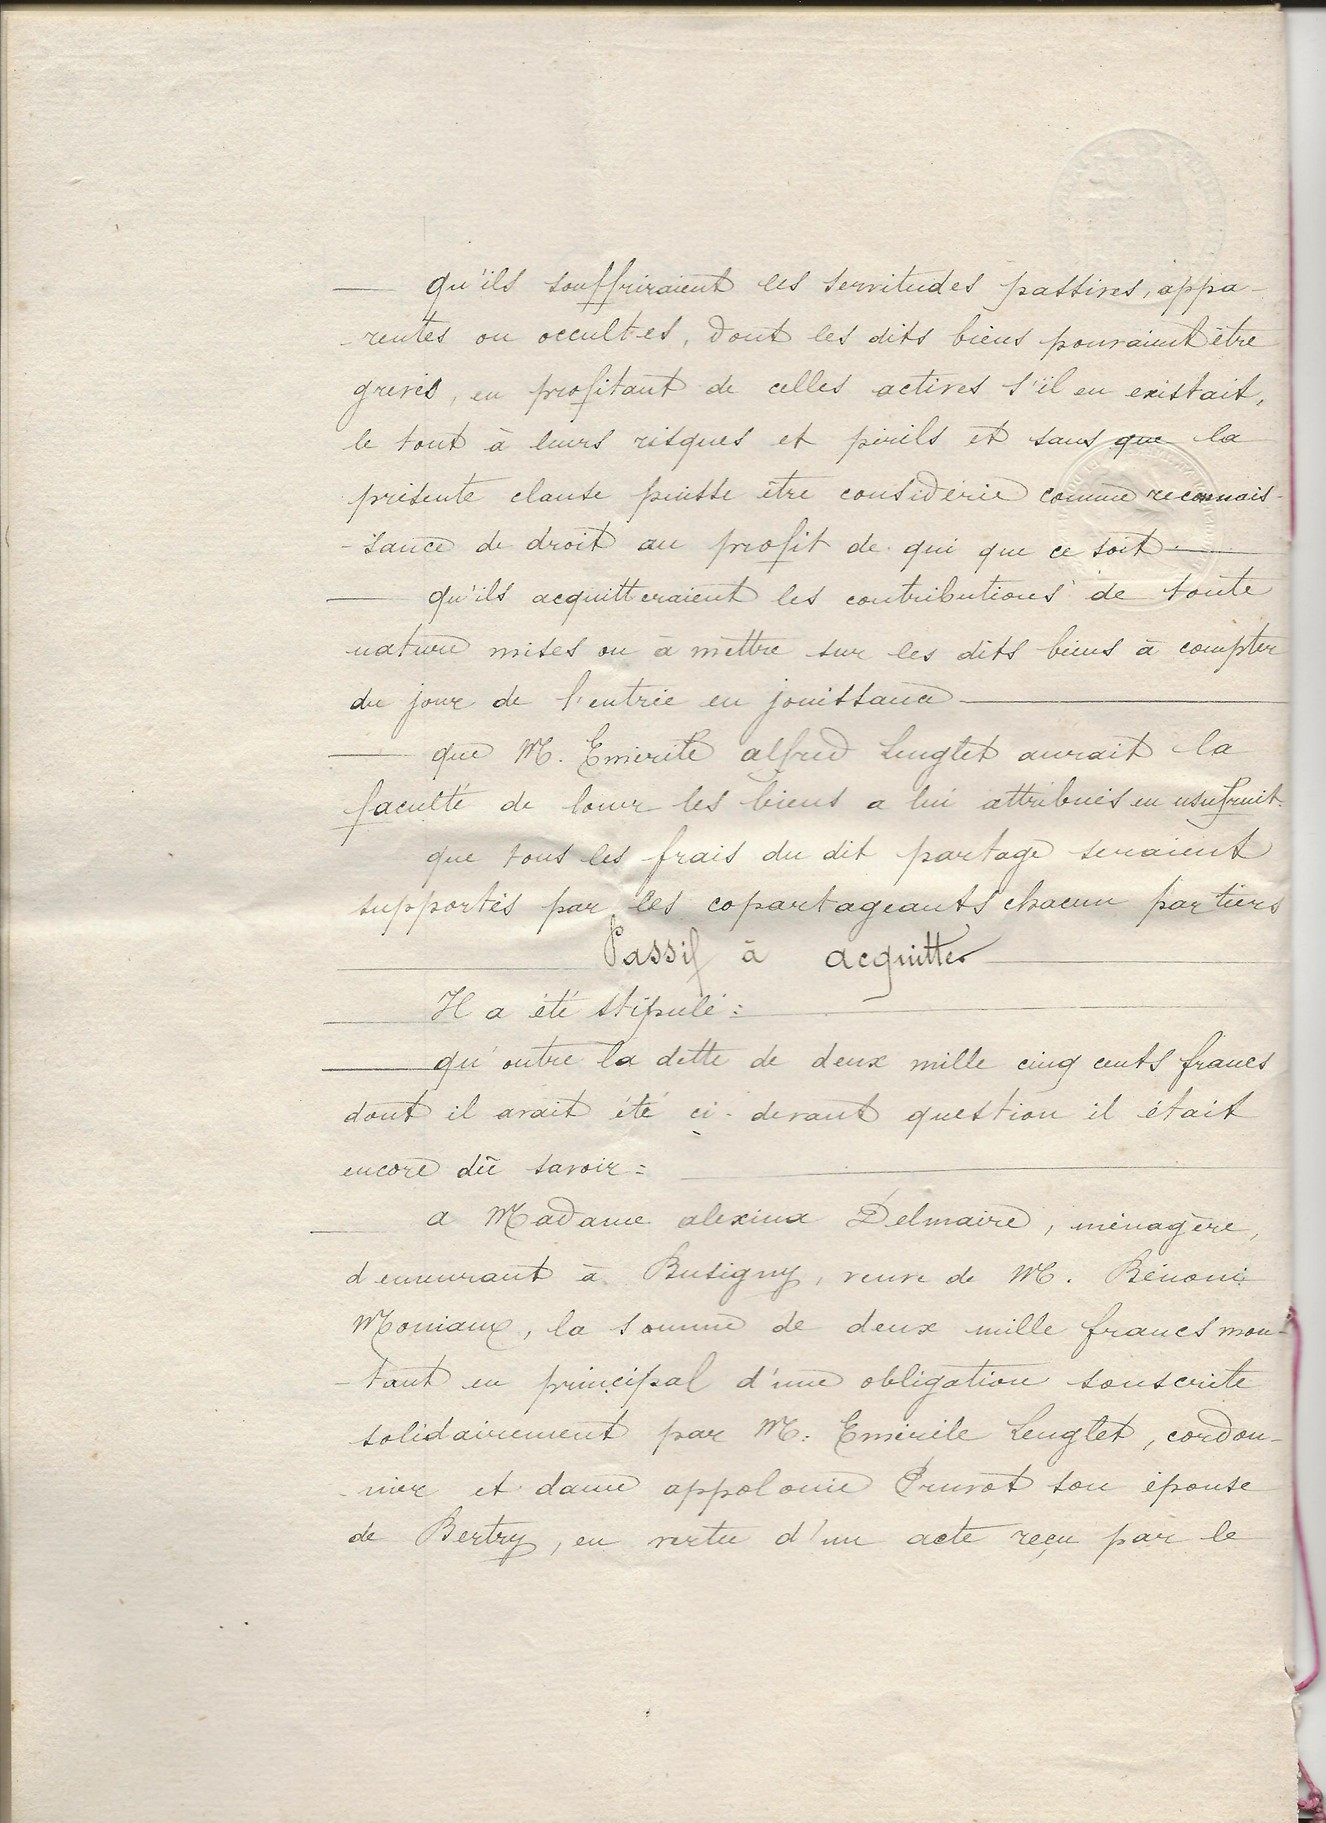 qu'ils souffriraient les servitudes passives, appa-
-rentes ou occultes, dont les dits biens pourraient être
grevés, en profitant de celles actives s'il en existait,
le tout à leurs risques et périls et sans que la
présente clause puisse être considérée comme reconnais-
-sance de droit au profit de qui que ce soit
qu'ils acquitteraient les contributions de toute
nature mises ou à mettre sur les dits biens à compter
du jour de l'entrée en jouissance
que M. Emérile alfred Lenglet aurait la
faculté de louer les biens a lui attribués en usufruit.
que tous les frais du dit partage seraient
supportés par les copartageants chacun par tiers
Passif à acquitter
Il a été stipulé :
qu'outre la dette de deux mille cinq cents francs
dont il avait été ci-devant question il était
encore dû savoir :
a Madame alexina Delmaire, ménagère,
demeurant à Busigny, veuve de M. Bénoni
Moniaux, la somme de deux mille francs mon-
-tant en principal d'une obligation souscrite
solidairement par M. Emérile Lenglet, cordon-
-nier et dame appolonie Pruvot son épouse
de Bertry, en vertu d'un acte reçu par le